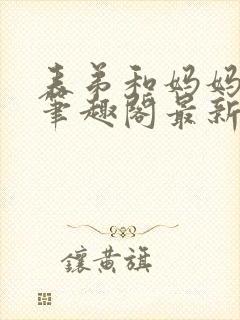 表弟和妈妈
笔趣阁最新
鑲黄旗